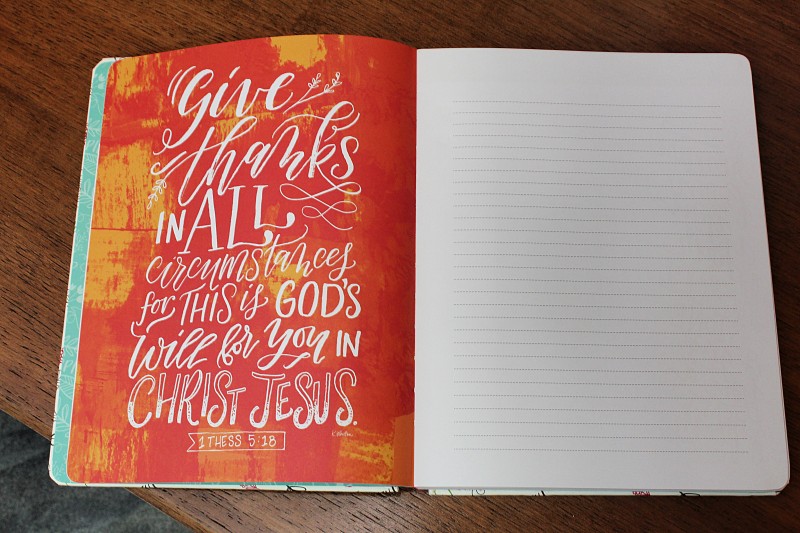 "Give
thanks
IN ALL
circumstances
for THIS is GOD'S
will for you IN
CHRIST JESUS.
1 THESS 5:18